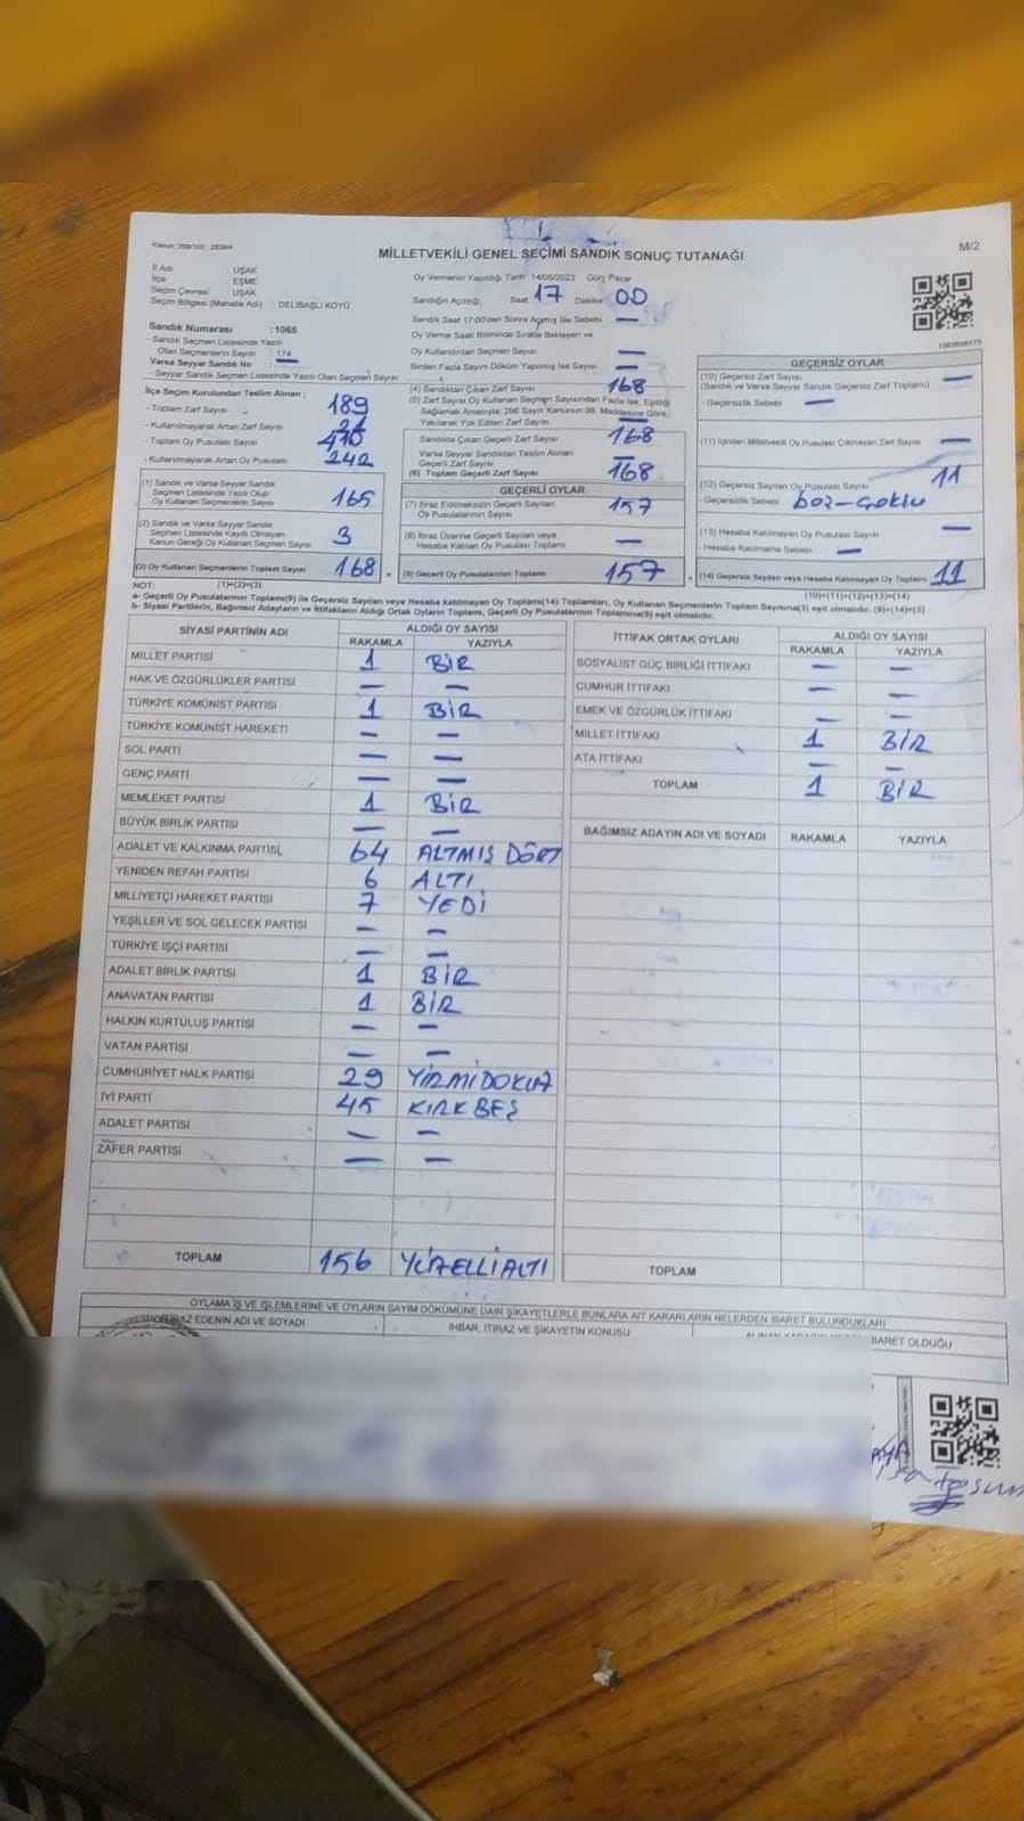 MİLLETVEKİLİ GENEL SEÇİMİ SANDIK SONUÇ TUTANAĞI
M/2
İl Adı UŞAK
İlçe EŞME
Seçim Çevresi UŞAK
Seçim Bölgesi (Mahalle Adı) DELİBAŞLI KÖYÜ
Oy Vermenin Yapıldığı Tarih 14/05/2023 Gün: Pazar
Sandığın Açıldığı Saat 17 Dakika 00
Sandık Saat 17:00'den Sonra Açılmış İse Sebebi —
Oy Verme Saati Bitiminde Sırada Bekleyen ve
Oy Kullandırılan Seçmen Sayısı —
Birden Fazla Sayım Döküm Yapılmış İse Sayısı —
Sandık Numarası :1065
- Sandık Seçmen Listesinde Yazılı
Olan Seçmenlerin Sayısı : 174
Varsa Seyyar Sandık No —
- Seyyar Sandık Seçmen Listesinde Yazılı Olan Seçmen Sayısı
İlçe Seçim Kurulundan Teslim Alınan ;
- Toplam Zarf Sayısı 189
- Kullanılmayarak Artan Zarf Sayısı 21
- Toplam Oy Pusulası Sayısı
- Kullanılmayarak Artan Oy Pusulası 242
(1) Sandık ve Varsa Seyyar Sandık
Seçmen Listesinde Yazılı Olup
Oy Kullanan Seçmenlerin Sayısı 165
(2) Sandık ve Varsa Seyyar Sandık
Seçmen Listesinde Kayıtlı Olmayan
Kanun Gereği Oy Kullanan Seçmen Sayısı 3
(3) Oy Kullanan Seçmenlerin Toplam Sayısı 168
(4) Sandıktan Çıkan Zarf Sayısı 168
(5) Zarf Sayısı Oy Kullanan Seçmen Sayısından Fazla İse, Eşitliği
Sağlamak Amacıyla; 298 Sayılı Kanunun 98. Maddesine Göre,
Yakılarak Yok Edilen Zarf Sayısı —
Sandıkta Çıkan Geçerli Zarf Sayısı 168
Varsa Seyyar Sandıktan Teslim Alınan
Geçerli Zarf Sayısı —
(6) Toplam Geçerli Zarf Sayısı 168
GEÇERLİ OYLAR
(7) İtiraz Edilmeksizin Geçerli Sayılan
Oy Pusulalarının Sayısı 157
(8) İtiraz Üzerine Geçerli Sayılan veya
Hesaba Katılan Oy Pusulası Toplamı —
(9) Geçerli Oy Pusulalarının Toplamı 157
GEÇERSİZ OYLAR
(10) Geçersiz Zarf Sayısı —
(Sandık ve Varsa Seyyar Sandık Geçersiz Zarf Toplamı)
- Geçersizlik Sebebi —
(11) İçinden Milletvekili Oy Pusulası Çıkmayan Zarf Sayısı —
(12) Geçersiz Sayılan Oy Pusulası Sayısı 11
- Geçersizlik Sebebi
(13) Hesaba Katılmayan Oy Pusulası Sayısı —
- Hesaba Katılmama Sebebi —
(14) Geçersiz Sayılan veya Hesaba Katılmayan Oy Toplamı 11
NOT: (1)+(2)=(3) (10)+(11)+(12)+(13)=(14)
a- Geçerli Oy Pusulalarının Toplamı(9) ile Geçersiz Sayılan veya Hesaba Katılmayan Oy Toplamı(14) Toplamları, Oy Kullanan Seçmenlerin Toplam Sayısına(3) eşit olmalıdır. (9)+(14)=(3)
b- Siyasi Partilerin, Bağımsız Adayların ve İttifakların Aldığı Ortak Oyların Toplamı, Geçerli Oy Pusulalarının Toplamına(9) eşit olmalıdır.
SİYASİ PARTİNİN ADI ALDIĞI OY SAYISI
RAKAMLA YAZIYLA
MİLLET PARTİSİ 1 BİR
HAK VE ÖZGÜRLÜKLER PARTİSİ — —
TÜRKİYE KOMÜNİST PARTİSİ 1 BİR
TÜRKİYE KOMÜNİST HAREKETİ — —
SOL PARTİ — —
GENÇ PARTİ — —
MEMLEKET PARTİSİ 1 BİR
BÜYÜK BİRLİK PARTİSİ — —
ADALET VE KALKINMA PARTİSİ 64 ALTMIŞ DÖRT
YENİDEN REFAH PARTİSİ 6 ALTI
MİLLİYETÇİ HAREKET PARTİSİ 7 YEDİ
YEŞİLLER VE SOL GELECEK PARTİSİ — —
TÜRKİYE İŞÇİ PARTİSİ — —
ADALET BİRLİK PARTİSİ 1 BİR
ANAVATAN PARTİSİ 1 BİR
HALKIN KURTULUŞ PARTİSİ — —
VATAN PARTİSİ — —
CUMHURİYET HALK PARTİSİ 29 YİRMİDOKUZ
İYİ PARTİ 45 KIRKBEŞ
ADALET PARTİSİ — —
ZAFER PARTİSİ — —
TOPLAM 156 YÜZELLİALTI
İTTİFAK ORTAK OYLARI ALDIĞI OY SAYISI
RAKAMLA YAZIYLA
SOSYALİST GÜÇ BİRLİĞİ İTTİFAKI — —
CUMHUR İTTİFAKI — —
EMEK VE ÖZGÜRLÜK İTTİFAKI — —
MİLLET İTTİFAKI 1 BİR
ATA İTTİFAKI — —
TOPLAM 1 BİR
BAĞIMSIZ ADAYIN ADI VE SOYADI RAKAMLA YAZIYLA
TOPLAM
OYLAMA İŞ VE İŞLEMLERİNE VE OYLARIN SAYIM DÖKÜMÜNE DAİR ŞİKAYETLERLE BUNLARA AİT KARARLARIN NELERDEN İBARET BULUNDUKLARI
EDENİN ADI VE SOYADI
İHBAR, İTİRAZ VE ŞİKAYETİN KONUSU
İBARET OLDUĞU